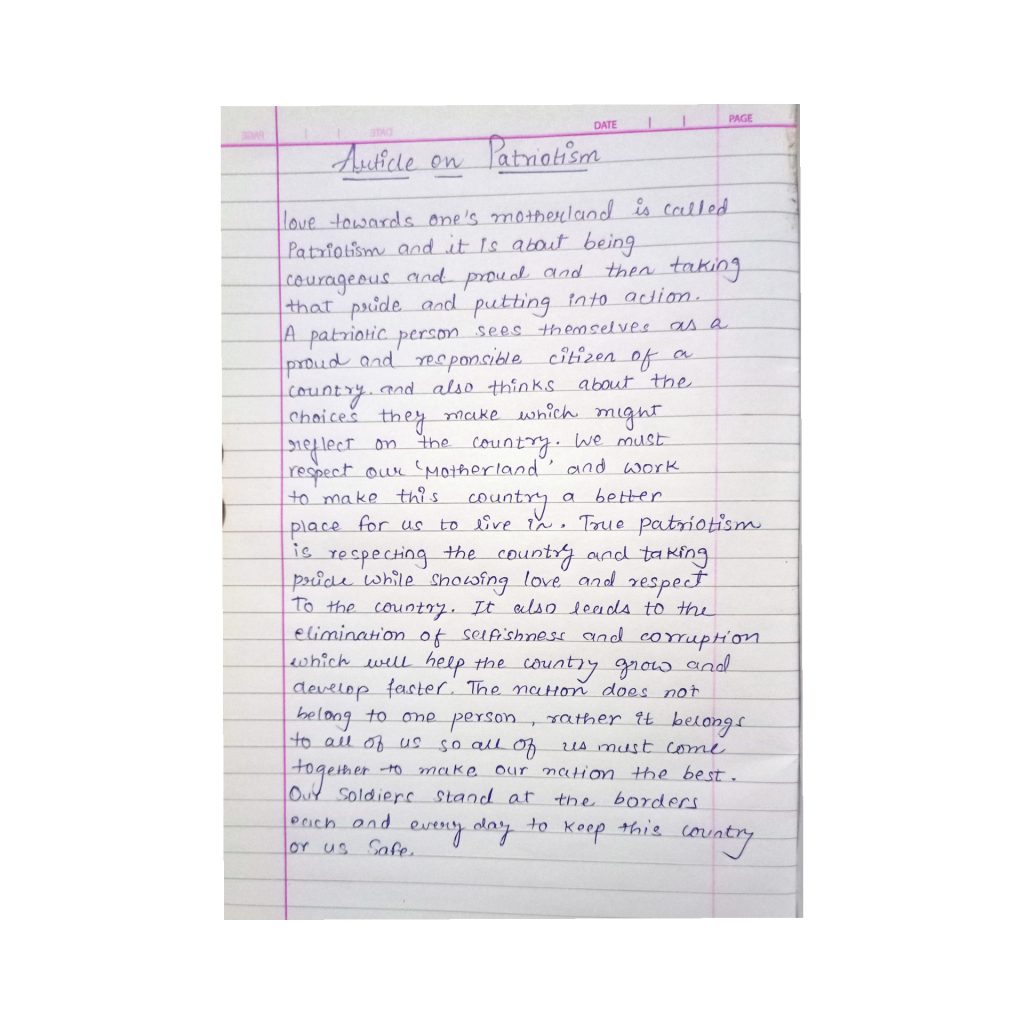 DATE | | PAGE
Article on Patriotism
love towards one's motherland is called
Patriotism and it is about being
courageous and proud and then taking
that pride and putting into action.
A patriotic person sees themselves as a
proud and responsible citizen of a
country. and also thinks about the
choices they make which might
reflect on the country. We must
respect our 'Motherland' and work
to make this country a better
place for us to live in. True patriotism
is respecting the country and taking
pride while showing love and respect
To the country. It also leads to the
elimination of selfishness and corruption
which will help the country grow and
develop faster. The nation does not
belong to one person, rather it belongs
to all of us so all of us must come
together to make our nation the best.
Our Soldiers stand at the borders
each and every day to keep this country
or us Safe.